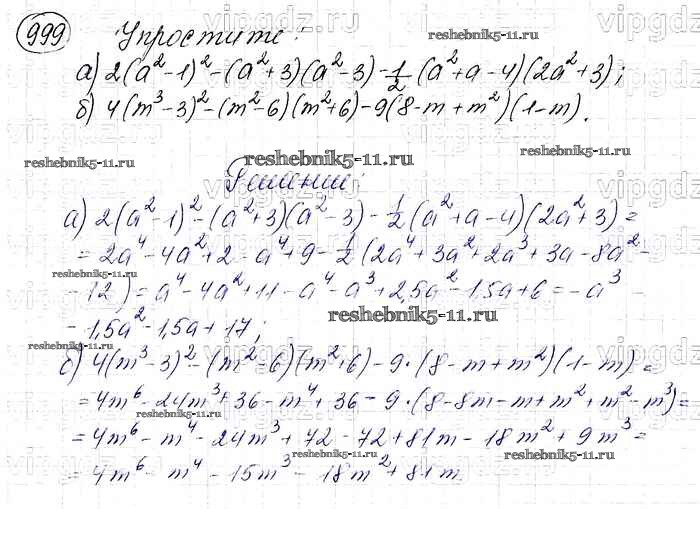 999 Упростите:
а) 2(a²-1)²-(a²+3)(a²-3)-1/2(a²+a-4)(2a²+3);
б) 4(m³-3)²-(m²-6)(m²+6)-9(8-m+m²)(1-m).
Решение:
а) 2(a²-1)²-(a²+3)(a²-3)-1/2(a²+a-4)(2a²+3)=
=2a⁴-4a²+2-a⁴+9-1/2(2a⁴+3a²+2a³+3a-8a²-
-12)=a⁴-4a²+11-a⁴-a³+2,5a²-1,5a+6=-a³-
-1,5a²-1,5a+17;
б) 4(m³-3)²-(m²-6)(m²+6)-9·(8-m+m²)(1-m)=
=4m⁶-24m³+36-m⁴+36-9·(8-8m-m+m²+m²-m³)=
=4m⁶-m⁴-24m³+72-72+81m-18m²+9m³=
=4m⁶-m⁴-15m³-18m²+81m
reshebnik5-11.ru
reshebnik5-11.ru
reshebnik5-11.ru
reshebnik5-11.ru
reshebnik5-11.ru
reshebnik5-11.ru
reshebnik5-11.ru
reshebnik5-11.ru
reshebnik5-11.ru
vipgdz